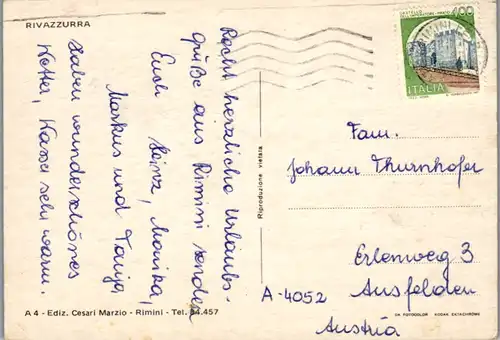 RIVAZZURRA
Recht herzliche Urlaubs-
grüße aus Rimini senden
Euch Heinz, Monika,
Markus und Tanja
Haben wunderschönes
Wetter, Wasser sehr warm.
A 4 - Ediz. Cesari Marzio - Rimini - Tel. 34.457
Riproduzione vietata
400
ITALIA
RIMINI
Fam.
Johann Thurnhofer
Erlenweg 3
A-4052 Ansfelden
Austria
DA FOTOCOLOR KODAK EKTACHROME